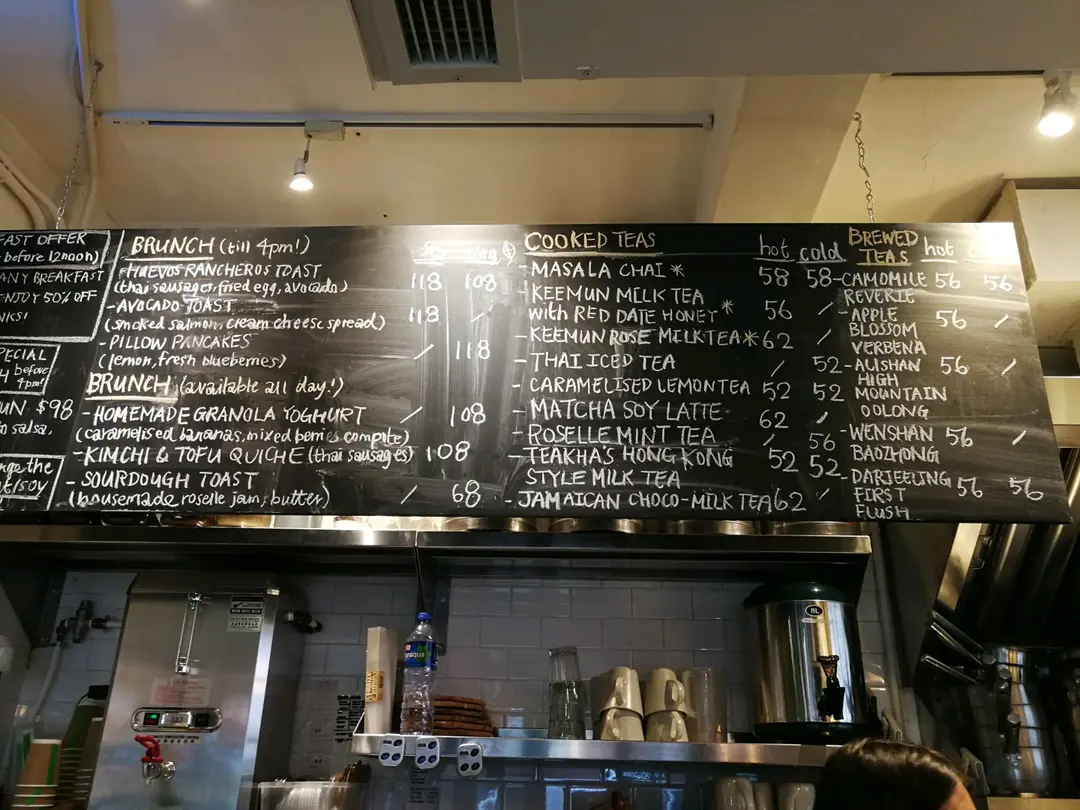 FAST OFFER
before 12noon)
ANY BREAKFAST
ENJOY 50% OFF
NKS!
PECIAL
before
4pm!
UN $98
salsa,
nge the
/SOY
BRUNCH (till 4pm!)
- HUEVOS RANCHEROS TOAST 118 108
(thai sausages, fried egg, avocado)
- AVOCADO TOAST 118 /
(smoked salmon, cream cheese spread)
- PILLOW PANCAKES / 118
(lemon, fresh blueberries)
BRUNCH (available all day!)
- HOMEMADE GRANOLA YOGHURT / 108
(caramelised bananas, mixed berries compote)
- KIMCHI & TOFU QUICHE (thai sausages) 108
- SOURDOUGH TOAST / 68
(housemade roselle jam, butter)
COOKED TEAS hot cold
- MASALA CHAI * 58 58
- KEEMUN MILK TEA
with RED DATE HONEY * 56 /
- KEEMUN ROSE MILK TEA * 62 /
- THAI ICED TEA / 52
- CARAMELISED LEMON TEA 52 52
- MATCHA SOY LATTE 62 /
- ROSELLE MINT TEA / 56
- TEAKHA'S HONG KONG 52 52
STYLE MILK TEA
- JAMAICAN CHOCO-MILK TEA 62 /
BREWED hot
TEAS
- CAMOMILE 56 56
REVERIE
- APPLE 56 /
BLOSSOM
VERBENA
- ALISHAN 56 /
HIGH
MOUNTAIN
OOLONG
- WENSHAN 56 /
BAOZHONG
- DARJEELING 56 56
FIRST
FLUSH
8L